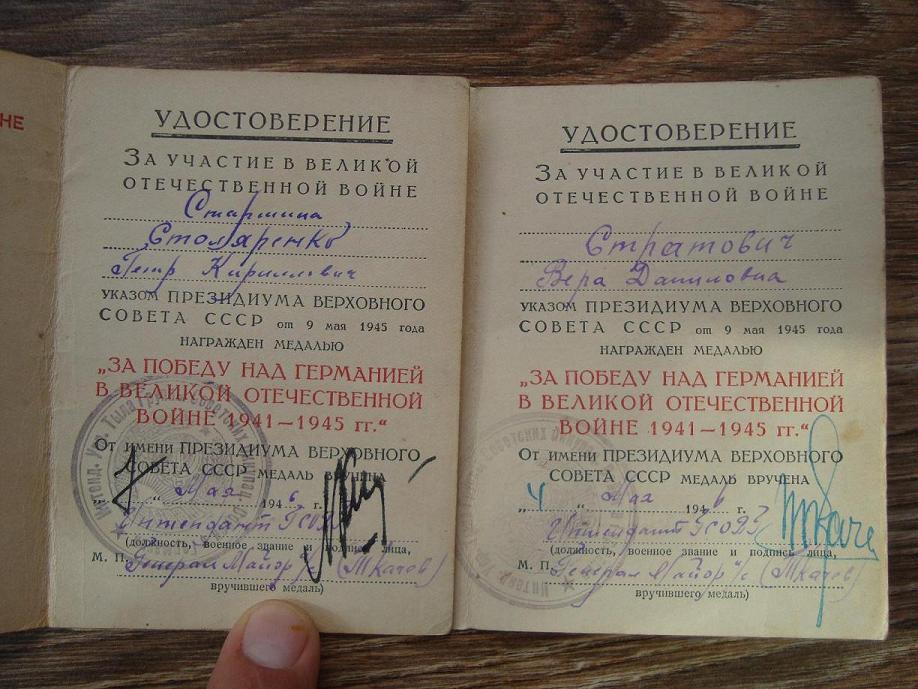 НЕ
УДОСТОВЕРЕНИЕ
ЗА УЧАСТИЕ В ВЕЛИКОЙ
ОТЕЧЕСТВЕННОЙ ВОЙНЕ
Старшина
Столяренко
Петр Кириллович
УКАЗОМ ПРЕЗИДИУМА ВЕРХОВНОГО
СОВЕТА СССР от 9 мая 1945 года
НАГРАЖДЕН МЕДАЛЬЮ
„ЗА ПОБЕДУ НАД ГЕРМАНИЕЙ
В ВЕЛИКОЙ ОТЕЧЕСТВЕННОЙ
ВОЙНЕ 1941—1945 гг.“
От имени ПРЕЗИДИУМА ВЕРХОВНОГО
СОВЕТА СССР МЕДАЛЬ ВРУЧЕНА
Мая 1946 г.
Интендант
(должность, военное звание и подпись лица,
М. П. Генерал Майор и/с (Ткачев)
вручившего медаль)
УДОСТОВЕРЕНИЕ
ЗА УЧАСТИЕ В ВЕЛИКОЙ
ОТЕЧЕСТВЕННОЙ ВОЙНЕ
Стратович
Вера Даниловна
УКАЗОМ ПРЕЗИДИУМА ВЕРХОВНОГО
СОВЕТА СССР от 9 мая 1945 года
НАГРАЖДЕН МЕДАЛЬЮ
„ЗА ПОБЕДУ НАД ГЕРМАНИЕЙ
В ВЕЛИКОЙ ОТЕЧЕСТВЕННОЙ
ВОЙНЕ 1941—1945 гг.“
От имени ПРЕЗИДИУМА ВЕРХОВНОГО
СОВЕТА СССР МЕДАЛЬ ВРУЧЕНА
„4“ Мая 1946 г.
Интендант
(должность, военное звание и подпись лица,
М. П. Генерал Майор и/с (Ткачев)
вручившего медаль)